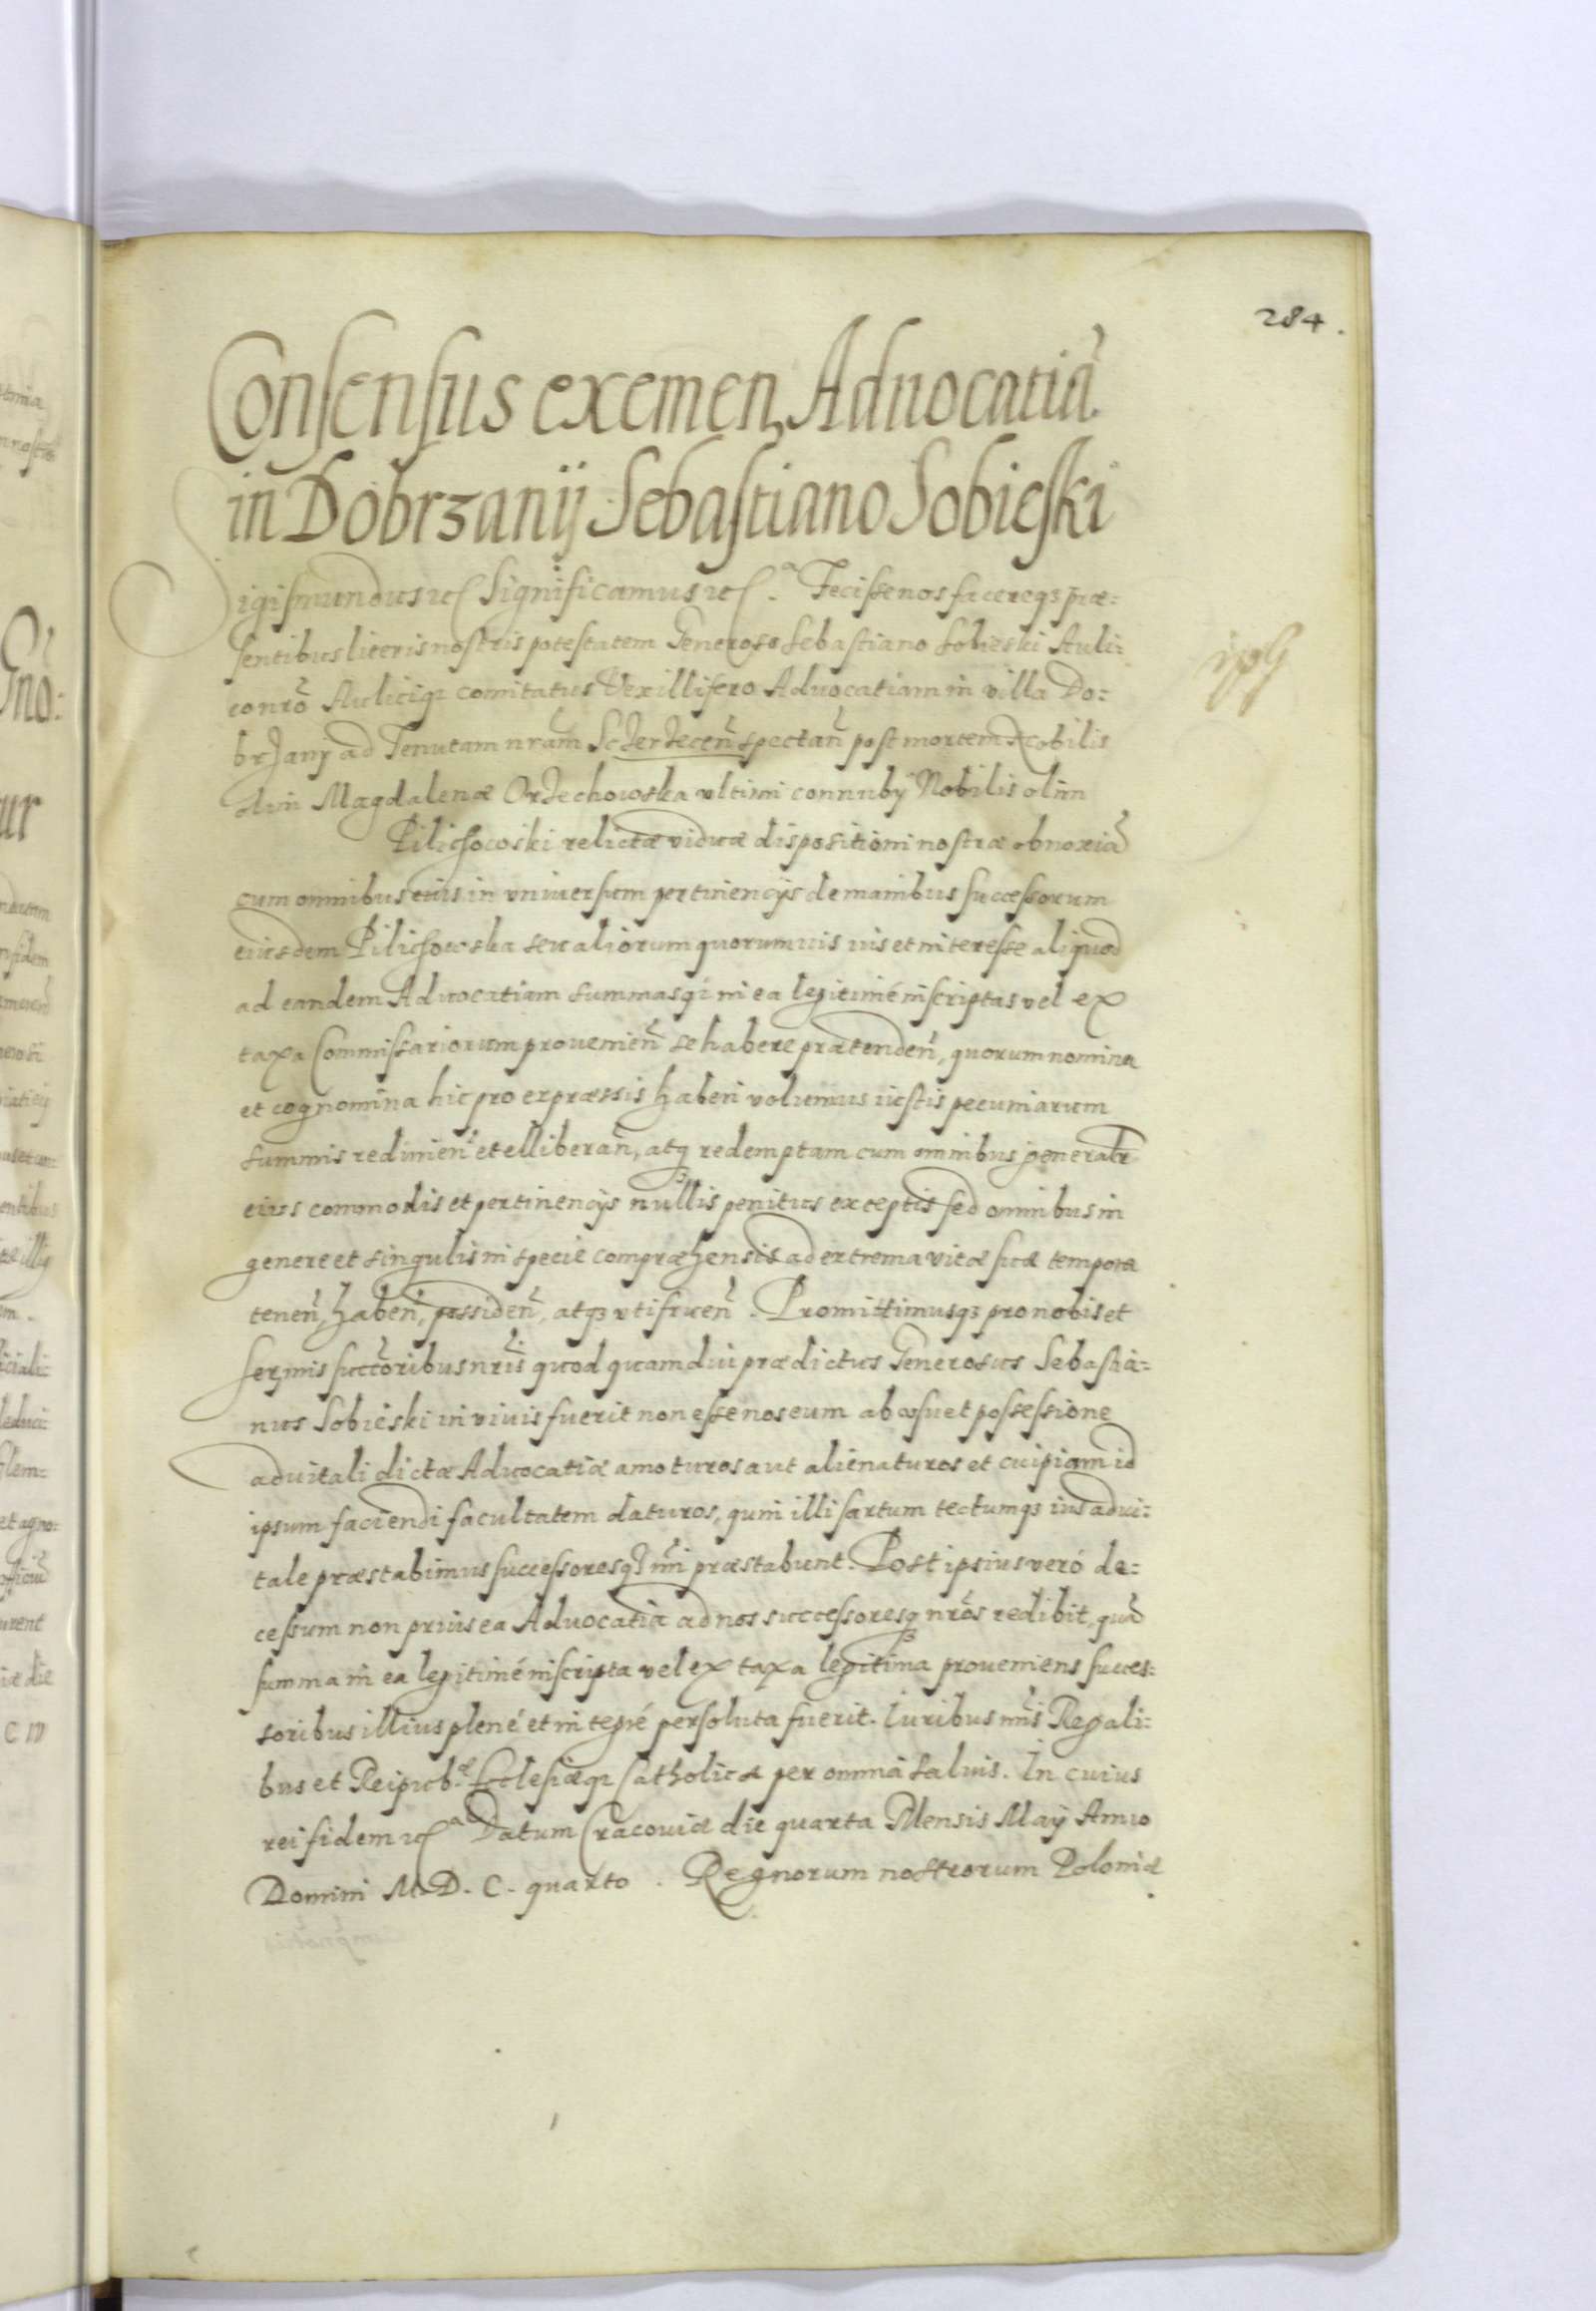 284.
Consensus exemen. Aduocatiã
in Dobrzanij Sebastiano Sobieski
Sigismundus etc Significamus etc.ª Fecisse nos facereqз præ:
sentibus literis nostris potestatem Generoso Sebastiano Sobieski Auli:
co nrõ Auliciqз comitatus Vexillifero Aduocatiam in villa Do:
brzanij ad Tenutam nram̃ Sczerzecen̄ spectan̄ post mortem Nobilis
olim Magdalenæ Orzechowska vltimi connubij Nobilis olim
Pilichowski relictæ viduæ dispositioni nostræ obnoxiã
cum omnibus eius in vniuersum pertinencijs de manibus successorum
eiusdem Pilichowska seu aliorum quorumuis ius et interesse aliquod
ad eandem Aduocatiam summasqз in ea legitimè inscriptas vel ex
taxa Commissariorum prouenien̄ se habere prætenden̄, quorum nomina
et cognomina hic pro expressis haberi volumus iustis pecuniarum
summis redimen̄ et elliberan̄, atqз redemptam cum omnibus generalr̃
eius commodis et pertinencijs nullis penitus exceptis sed omnibus in
genere et singulis in specie compræhensis ad extrema vitæ suæ tempora
tenen̄, haben̄, possiden̄, atqз vtifruen̄. Promittimusqз pro nobis et
Sermis succõribus nrĩs quod quamdiu prædictus Generosus Sebastia:
nus Sobieski in viuis fuerit non esse nos eum ab vsu et possessione
aduitali dictæ Aduocatiæ amoturos aut alienaturos et cuipiam id
ipsum faciendi facultatem daturos, quin illi sartum tectumqз ius adui:
tale præstabimus successoresqз nrĩ præstabunt. Post ipsius verò de:
cessum non prius ea Aduocatia ad nos successoresqз nrõs redibit, quã
summa in ea legitimè inscripta vel ex taxa legitima proueniens succes:
soribus illius plenè et integrè persoluta fuerit. Iuribus nrĩs Regali:
bus et Reipub.æ Ecclesiæqз Catholicæ per omnia saluis. In cuius
rei fidem etc.ª Datum Cracouiæ die quarta Mensis Maij Anno
Domini M.D.C. quarto. Regnorum nostrorum Poloniæ